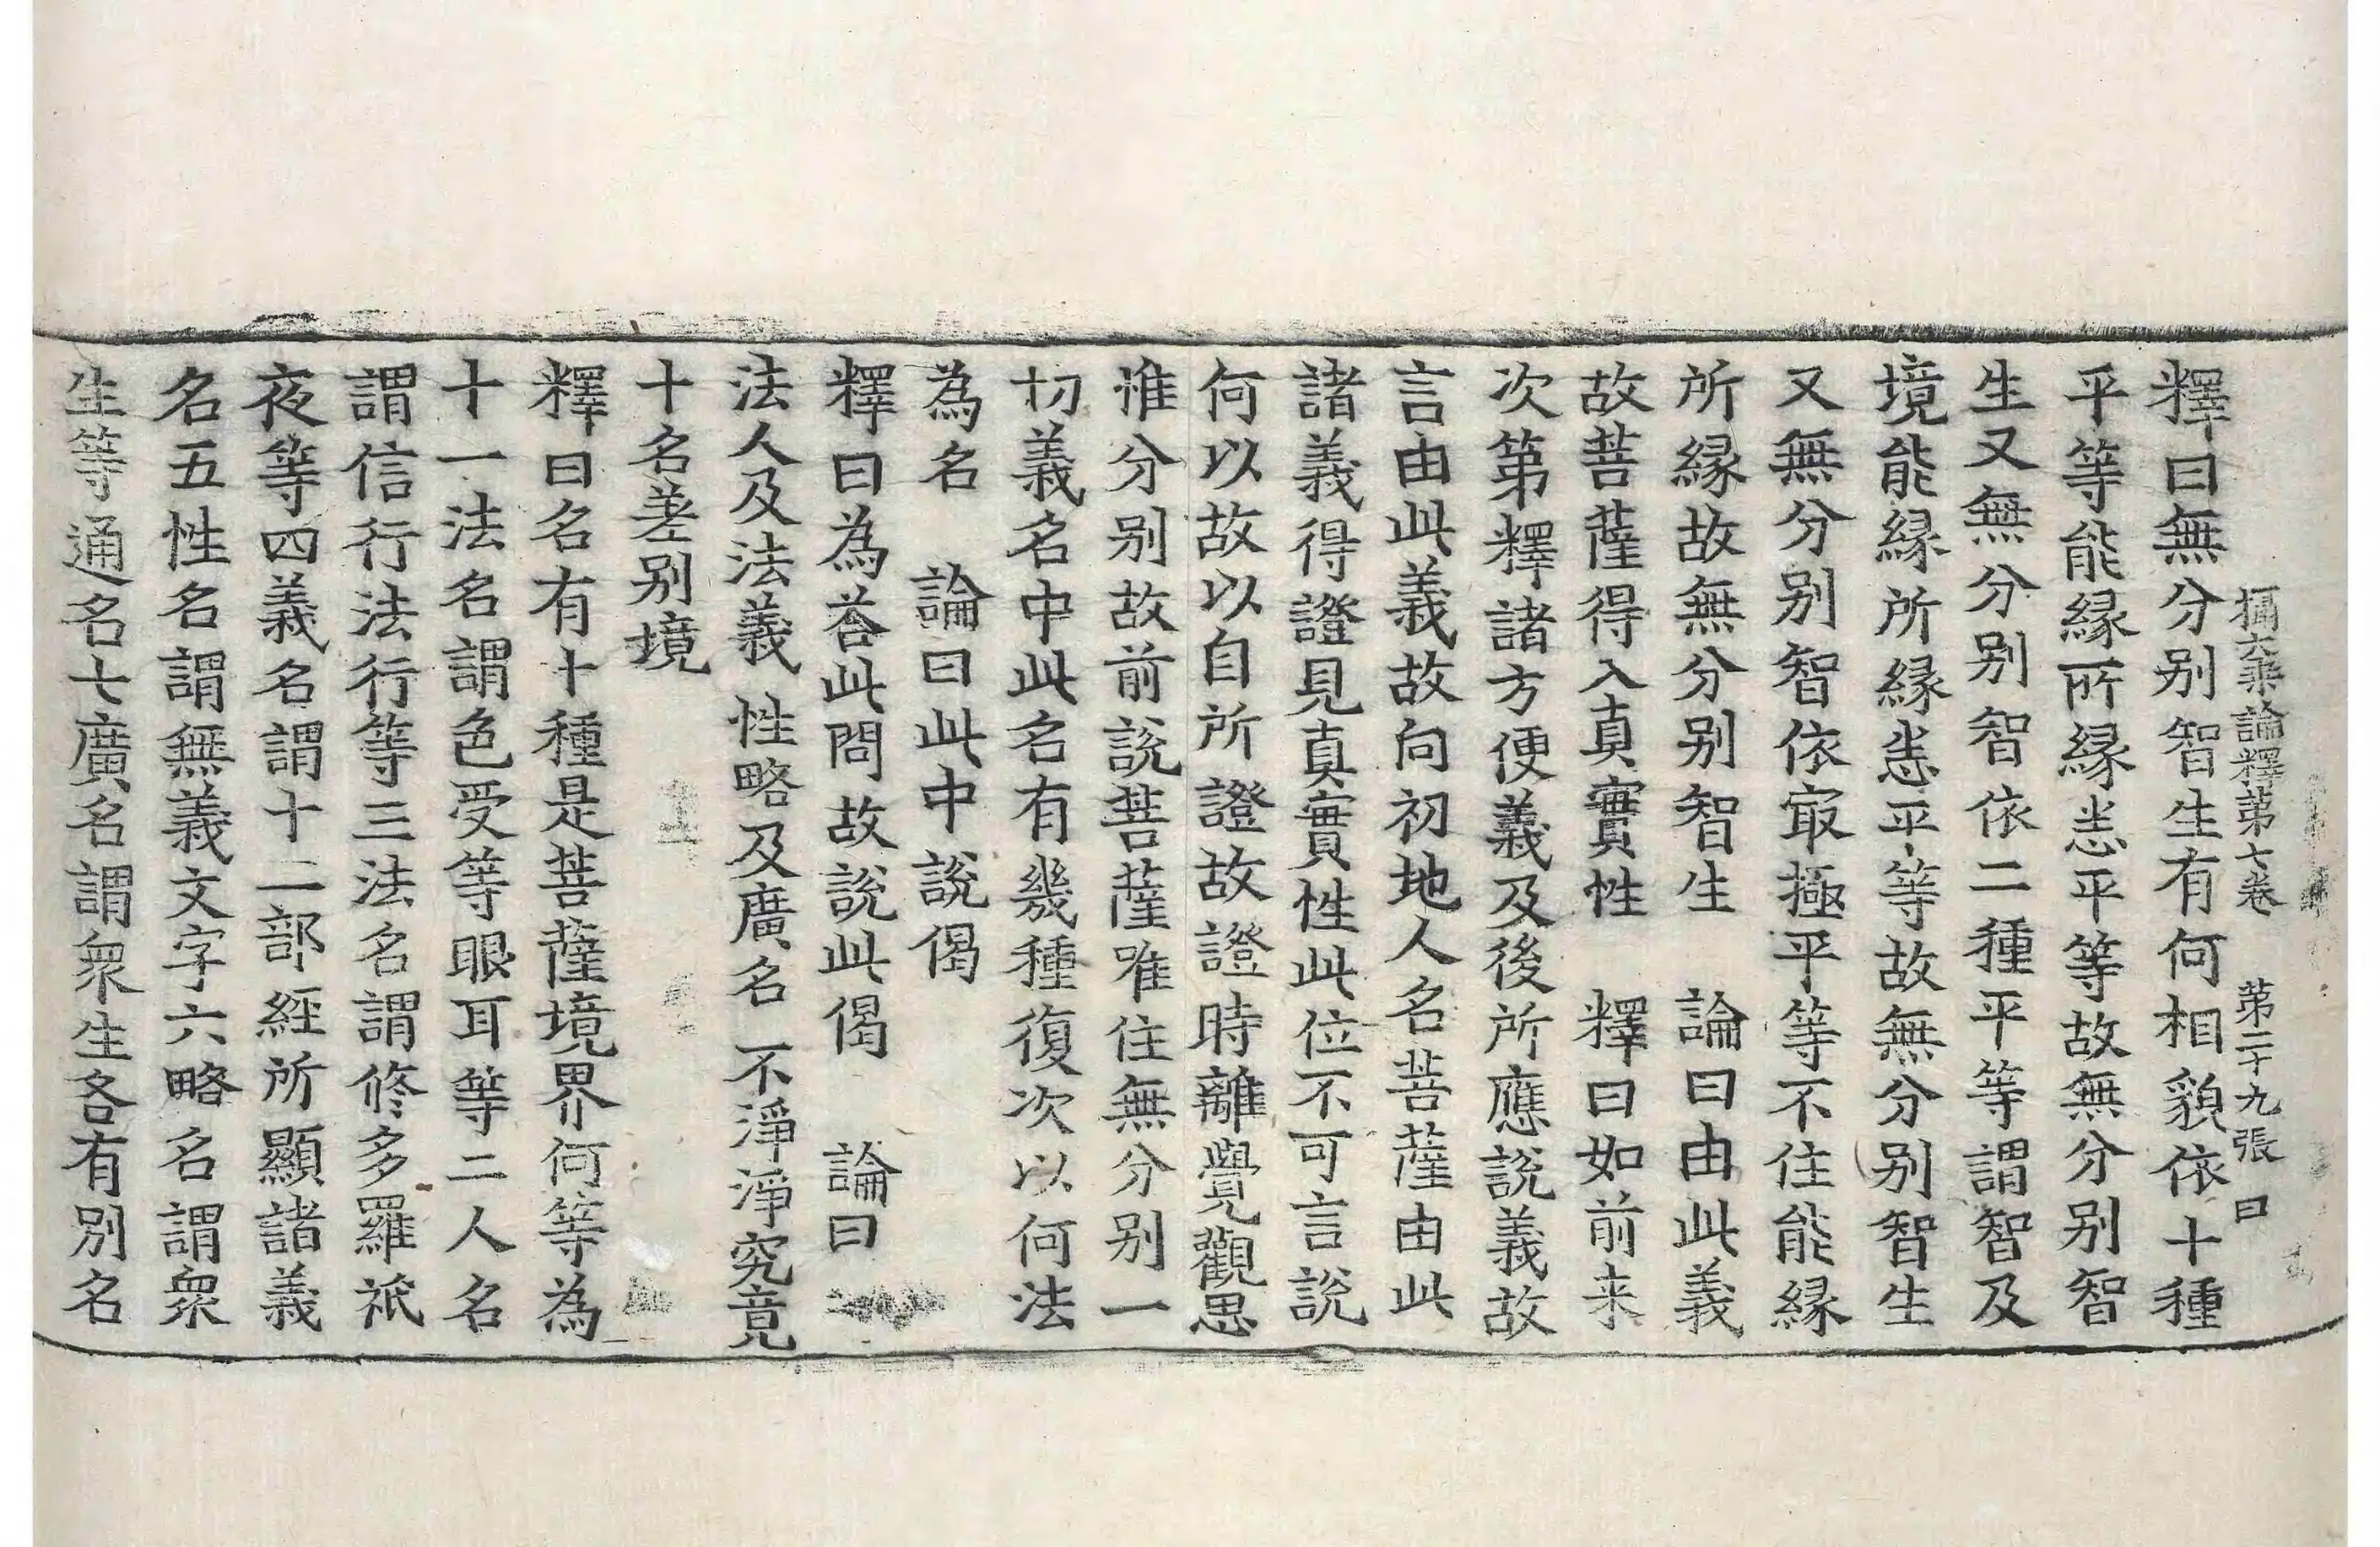 攝大乘論釋第七卷 第二十九張 曰
釋曰無分別智生有何相貌依十種
平等能緣所緣悉平等故無分別智
生又無分別智依二種平等謂智及
境能緣所緣悉平等故無分別智生
又無分別智依㝡極平等不住能緣
所緣故無分別智生 論曰由此義
故菩薩得入真實性 釋曰如前来
次第釋諸方便義及後所應説義故
言由此義故向初地人名菩薩由此
諸義得證見真實性此位不可言説
何以故以自所證故證時離覺觀思
惟分別故前説菩薩唯住無分別一
切義名中此名有幾種復次以何法
為名 論曰此中説偈
釋曰為荅此問故説此偈 論曰
法人及法義 性略及廣名 不淨淨究竟
十名差別境
釋曰名有十種是菩薩境界何等為
十一法名謂色受等眼耳等二人名
謂信行法行等三法名謂修多羅祇
夜等四義名謂十二部經所顯諸義
名五性名謂無義文字六略名謂衆
生等通名七廣名謂衆生各有別名